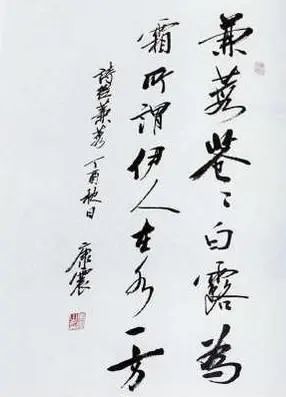 蒹葭苍〻白露為
霜所謂伊人在水一方
詩芸蒹葭 丁酉秋日
康震